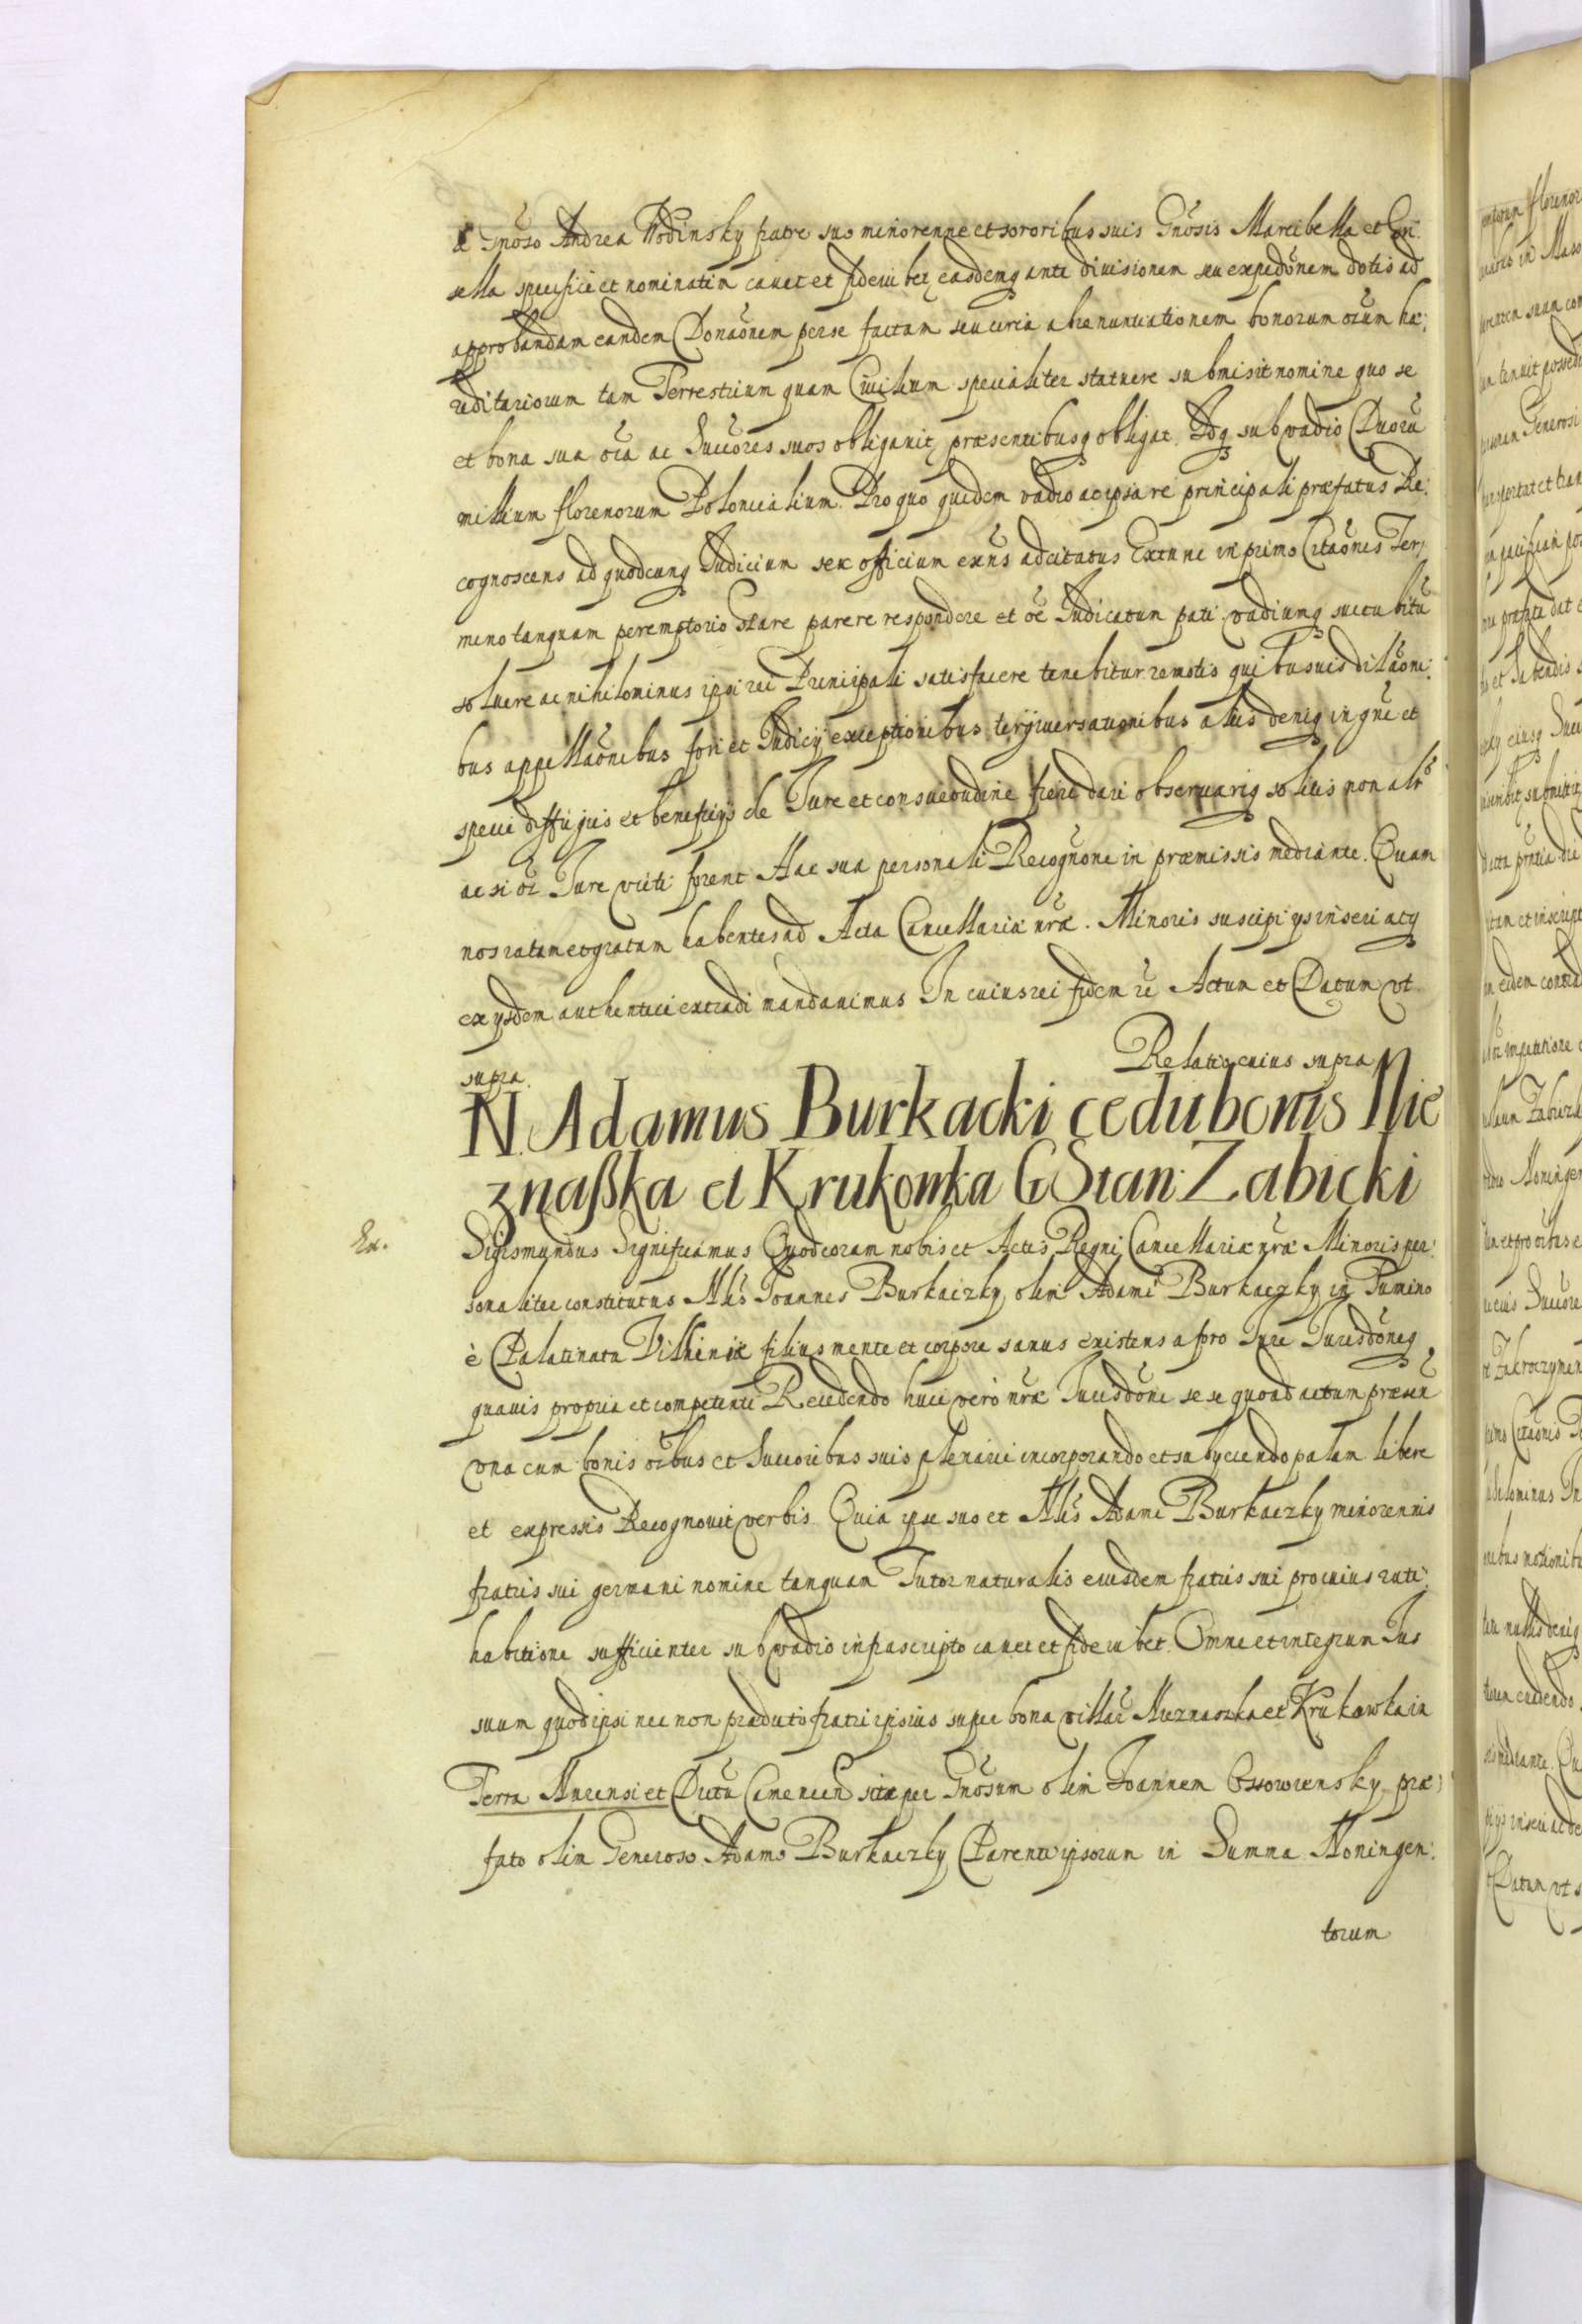 Gnoso Andrea Wodinsky fratre suo minorenne et sororibus suis Gnosis Maribella et
sella specifice et nominatim cavet et fideiubet easdemq ante divisionem seu expedõnem dotis ad
approbandam eandem Donaõnem per se factam seu circa abrenuntiationem bonorum oium hæ:
reditariorum tam Terrestrium quam Civilium specialiter statuere submisit nomine quo se
et bona sua oia ac Succores suos obligavit, præsentibusq obligat. Idq sub vadio Duorũ
millium florenorum Polonicalium. Pro quo quidem vadio ac ipsa re principali præfatus Re:
cognoscens ad quodcunq Iudicium seu officium exñs adcitatus Extunc in primo Citaõnis Ter
mino tanquam peremptorio stare parere respondere et oe Iudicatum pati vadiumq succubitũ
soluere ac nihilominus ipsi rei Principali satisfacere tenebitur remotis quibusuis dilaõni:
bus appellaõnibus fori et Iudicij exceptionibus tergiuersationibus aliis deniq in gne et
specie diffugijs et beneficijs de Iure et consuetudine fieri dari obseruariq solitis non alr
ac si oi Iure victi forent Hac sua personali Recognõne in præmissis mediante. Quam
nos ratam et gratam habentes ad Acta Cancellariæ nræ Minoris suscipi ijs inseri atq
ex ijsdem authentice extradi mandauimus In cuius rei fidem Actum et Datum vt
supra. Relatio cuius supra
N. Adamus Burkacki cedit bonis Nie
znaßka et Krukowka G Stan: Zabicki
Ex.
Sigismundus Significamus Quod coram nobis et Actis Regni Cancellariæ nræ Minoris per:
sonaliter constitutus Nlis Ioannes Burkaczky olim Adami Burkaczky in Pumino
è Palatinatu filius mente et corpore sanus existens a foro Iure Iurisdõneq
quauis propria et competenti Recedendo huic verò nræ Iurisdõni se se quoad actum præsen
vna cum bonis oibus et Succoribus suis plenarie incorporando et subijciendo palam libere
et expressis Recognouit verbis. Quia ipse suo et Nlis Adami Burkaczky minorennis
fratris sui germani nomine tanquam Tutor naturalis eiusdem fratris sui pro cuius rati:
habitione sufficienter sub vadio infrascripto cauet et fideiubet. Omne et integrum Ius
suum quod ipsi nec non prædicto fratri ipsius super bona villar Nieznaszka et Krukowka in
Terra Nurensi et Dictu sita per Gnosum olim Ioannem Ossowiensky præ
fato olim Generoso Adamo Burkaczky Parente ipsorum in Summa Noningen:
torum